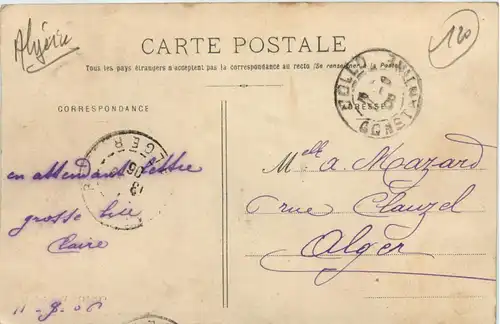 Algérie
120
CARTE POSTALE
Tous les pays étrangers n'acceptent pas la correspondance au recto (Se renseigner à la Poste)
CORRESPONDANCE
ADRESSE
COLLO
CONSTANTINE
ALGER
en attendant lettre
grosse bise
Claire
11-8-06
Melle A. Mazard
rue Clauzel
Alger